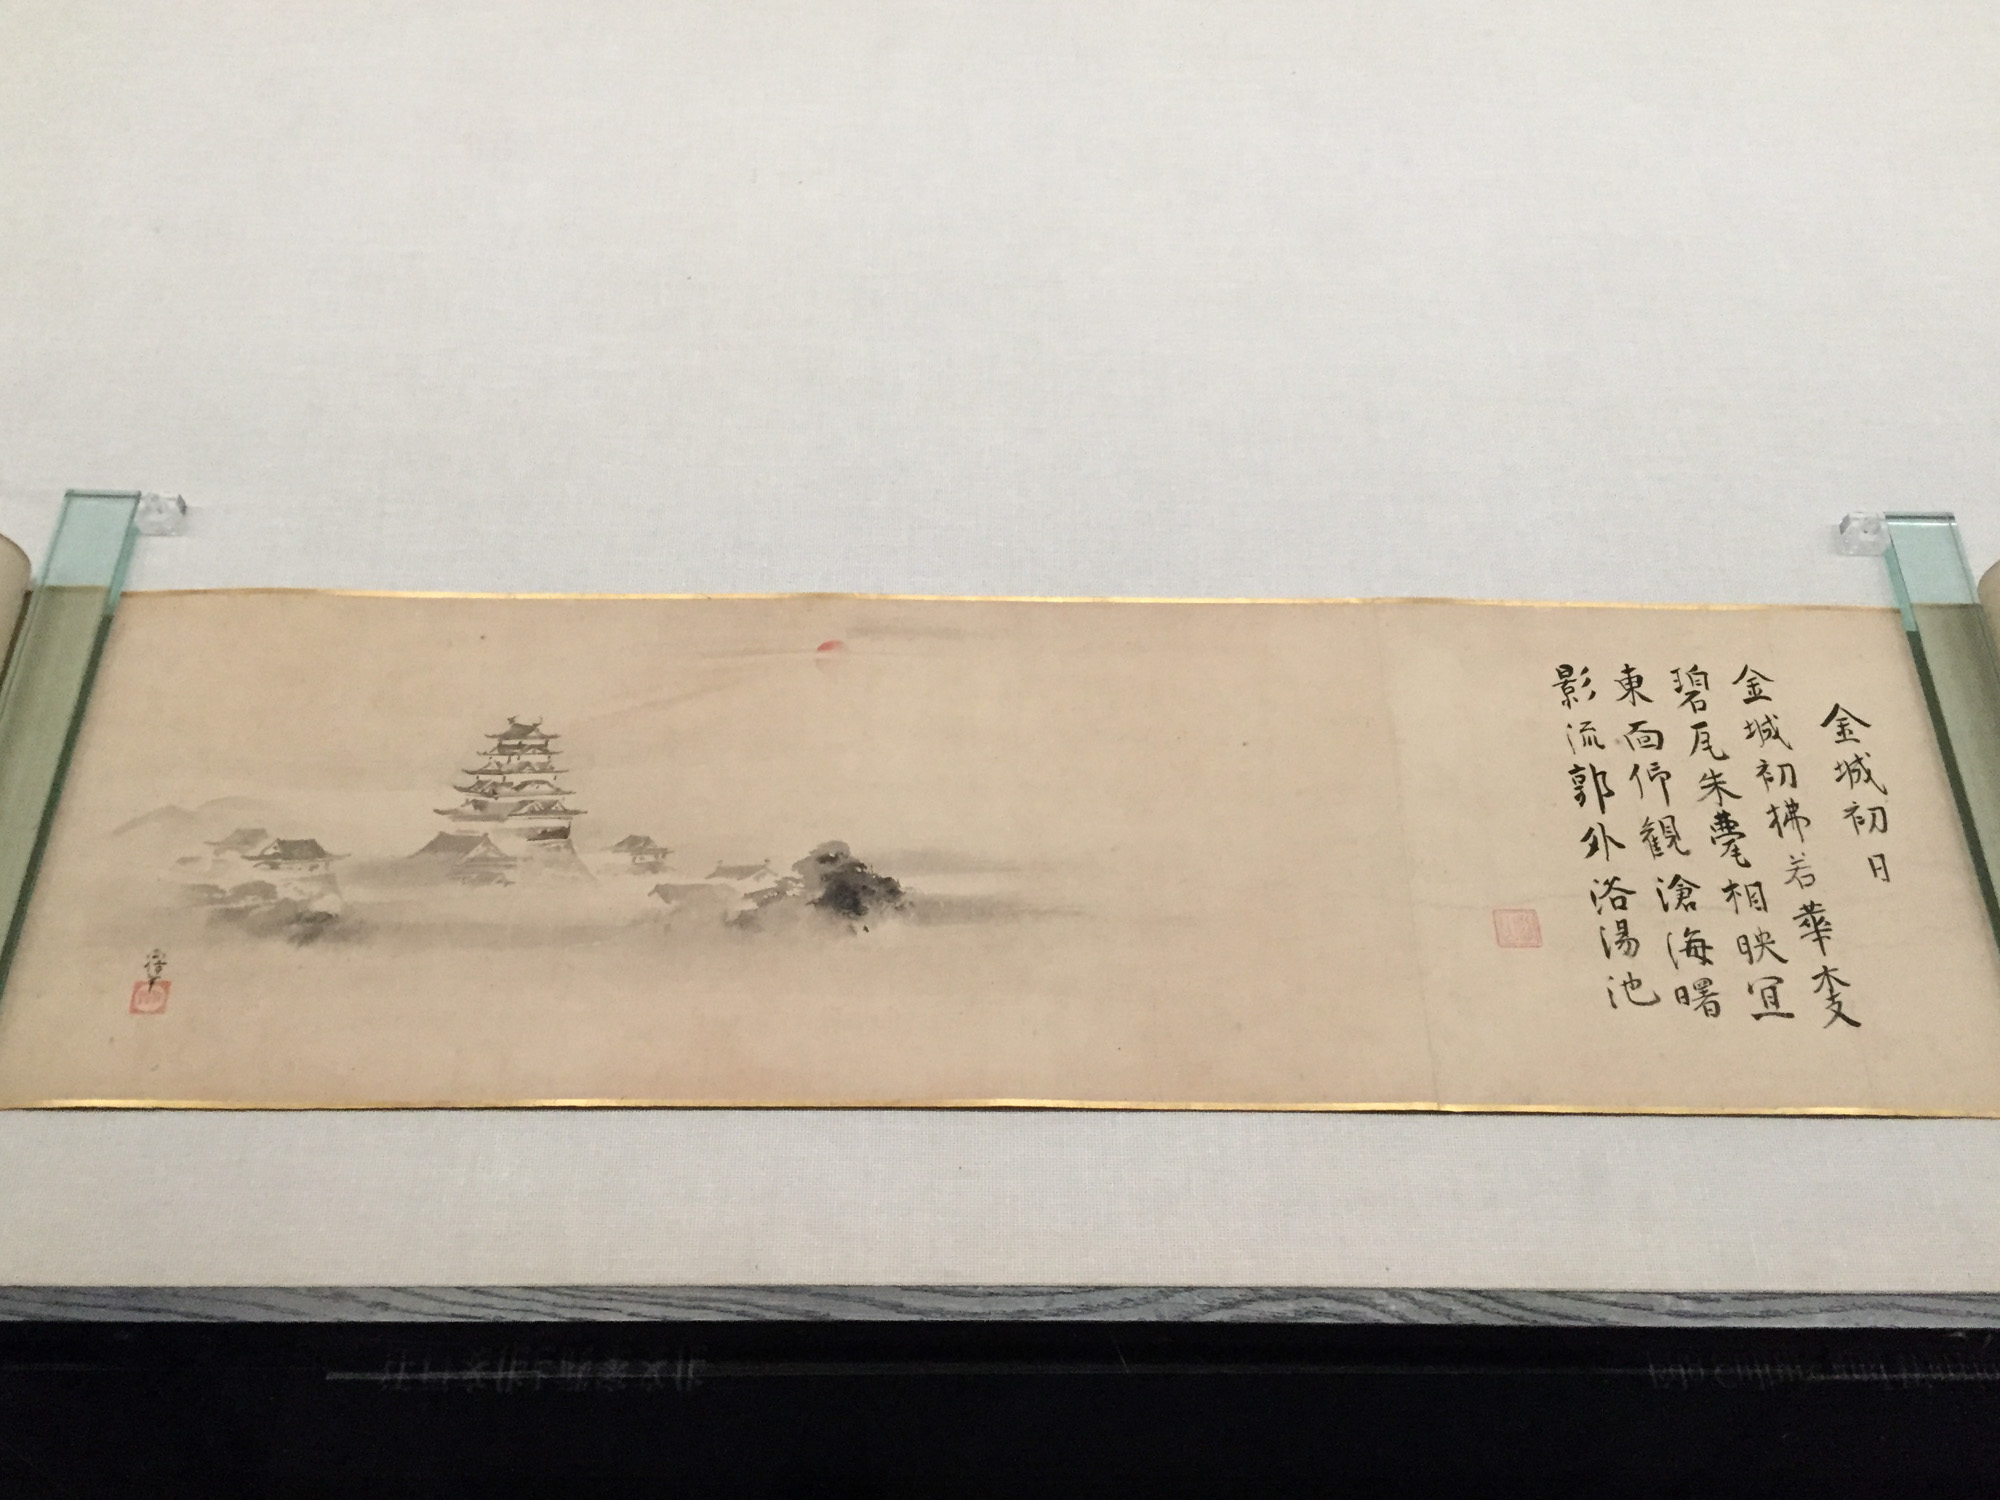 金城初日
金城初拂若華枝
碧瓦朱甍相映宜
東面仰観滄海曙
影流郭外浴湯池